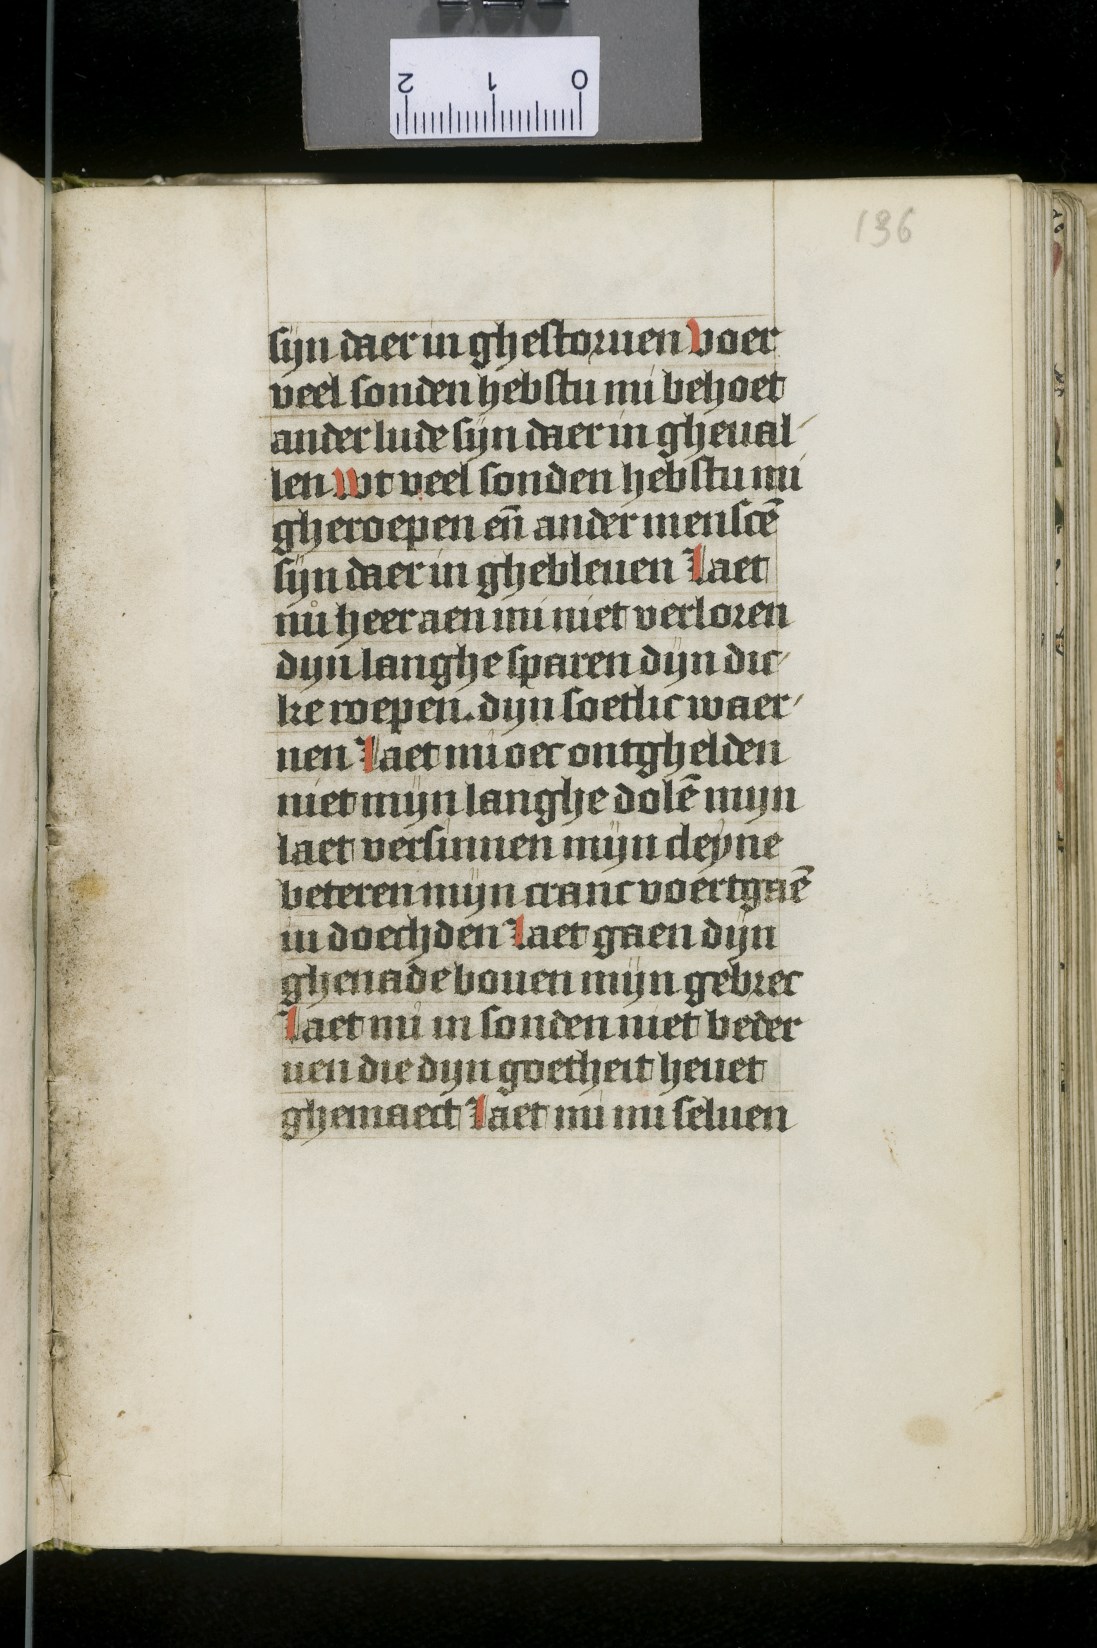 136
sijn daer in ghestoruen Voer
veel sonden hebstu mi behoet
ander lude sijn daer in gheual
len Wt veel sonden hebstu mi
gheroepen eñ ander menscē
sijn daer in ghebleuen Laet
nu heer aen mi niet verloren
dijn langhe sparen dijn dic
ke roepen. dijn soetlic waer
nen Laet mi oec ontghelden
niet mijn langhe dolē mijn
laet versinnen mijn cleyne
beteren mijn cranc voertgaē
in doechden Laet gaen dijn
ghenade bouen mijn gebrec
Laet mi in sonden niet beder
uen die dijn goetheit heuet
ghemaect Laet mi mi seluen
0 1 2